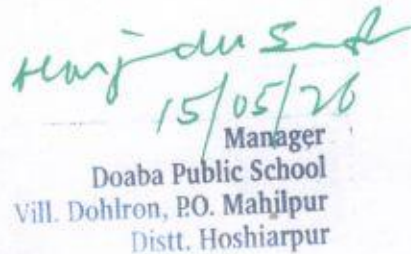 15/05/26
Manager
Doaba Public School
Vill. Dohlron, P.O. Mahilpur
Distt. Hoshiarpur